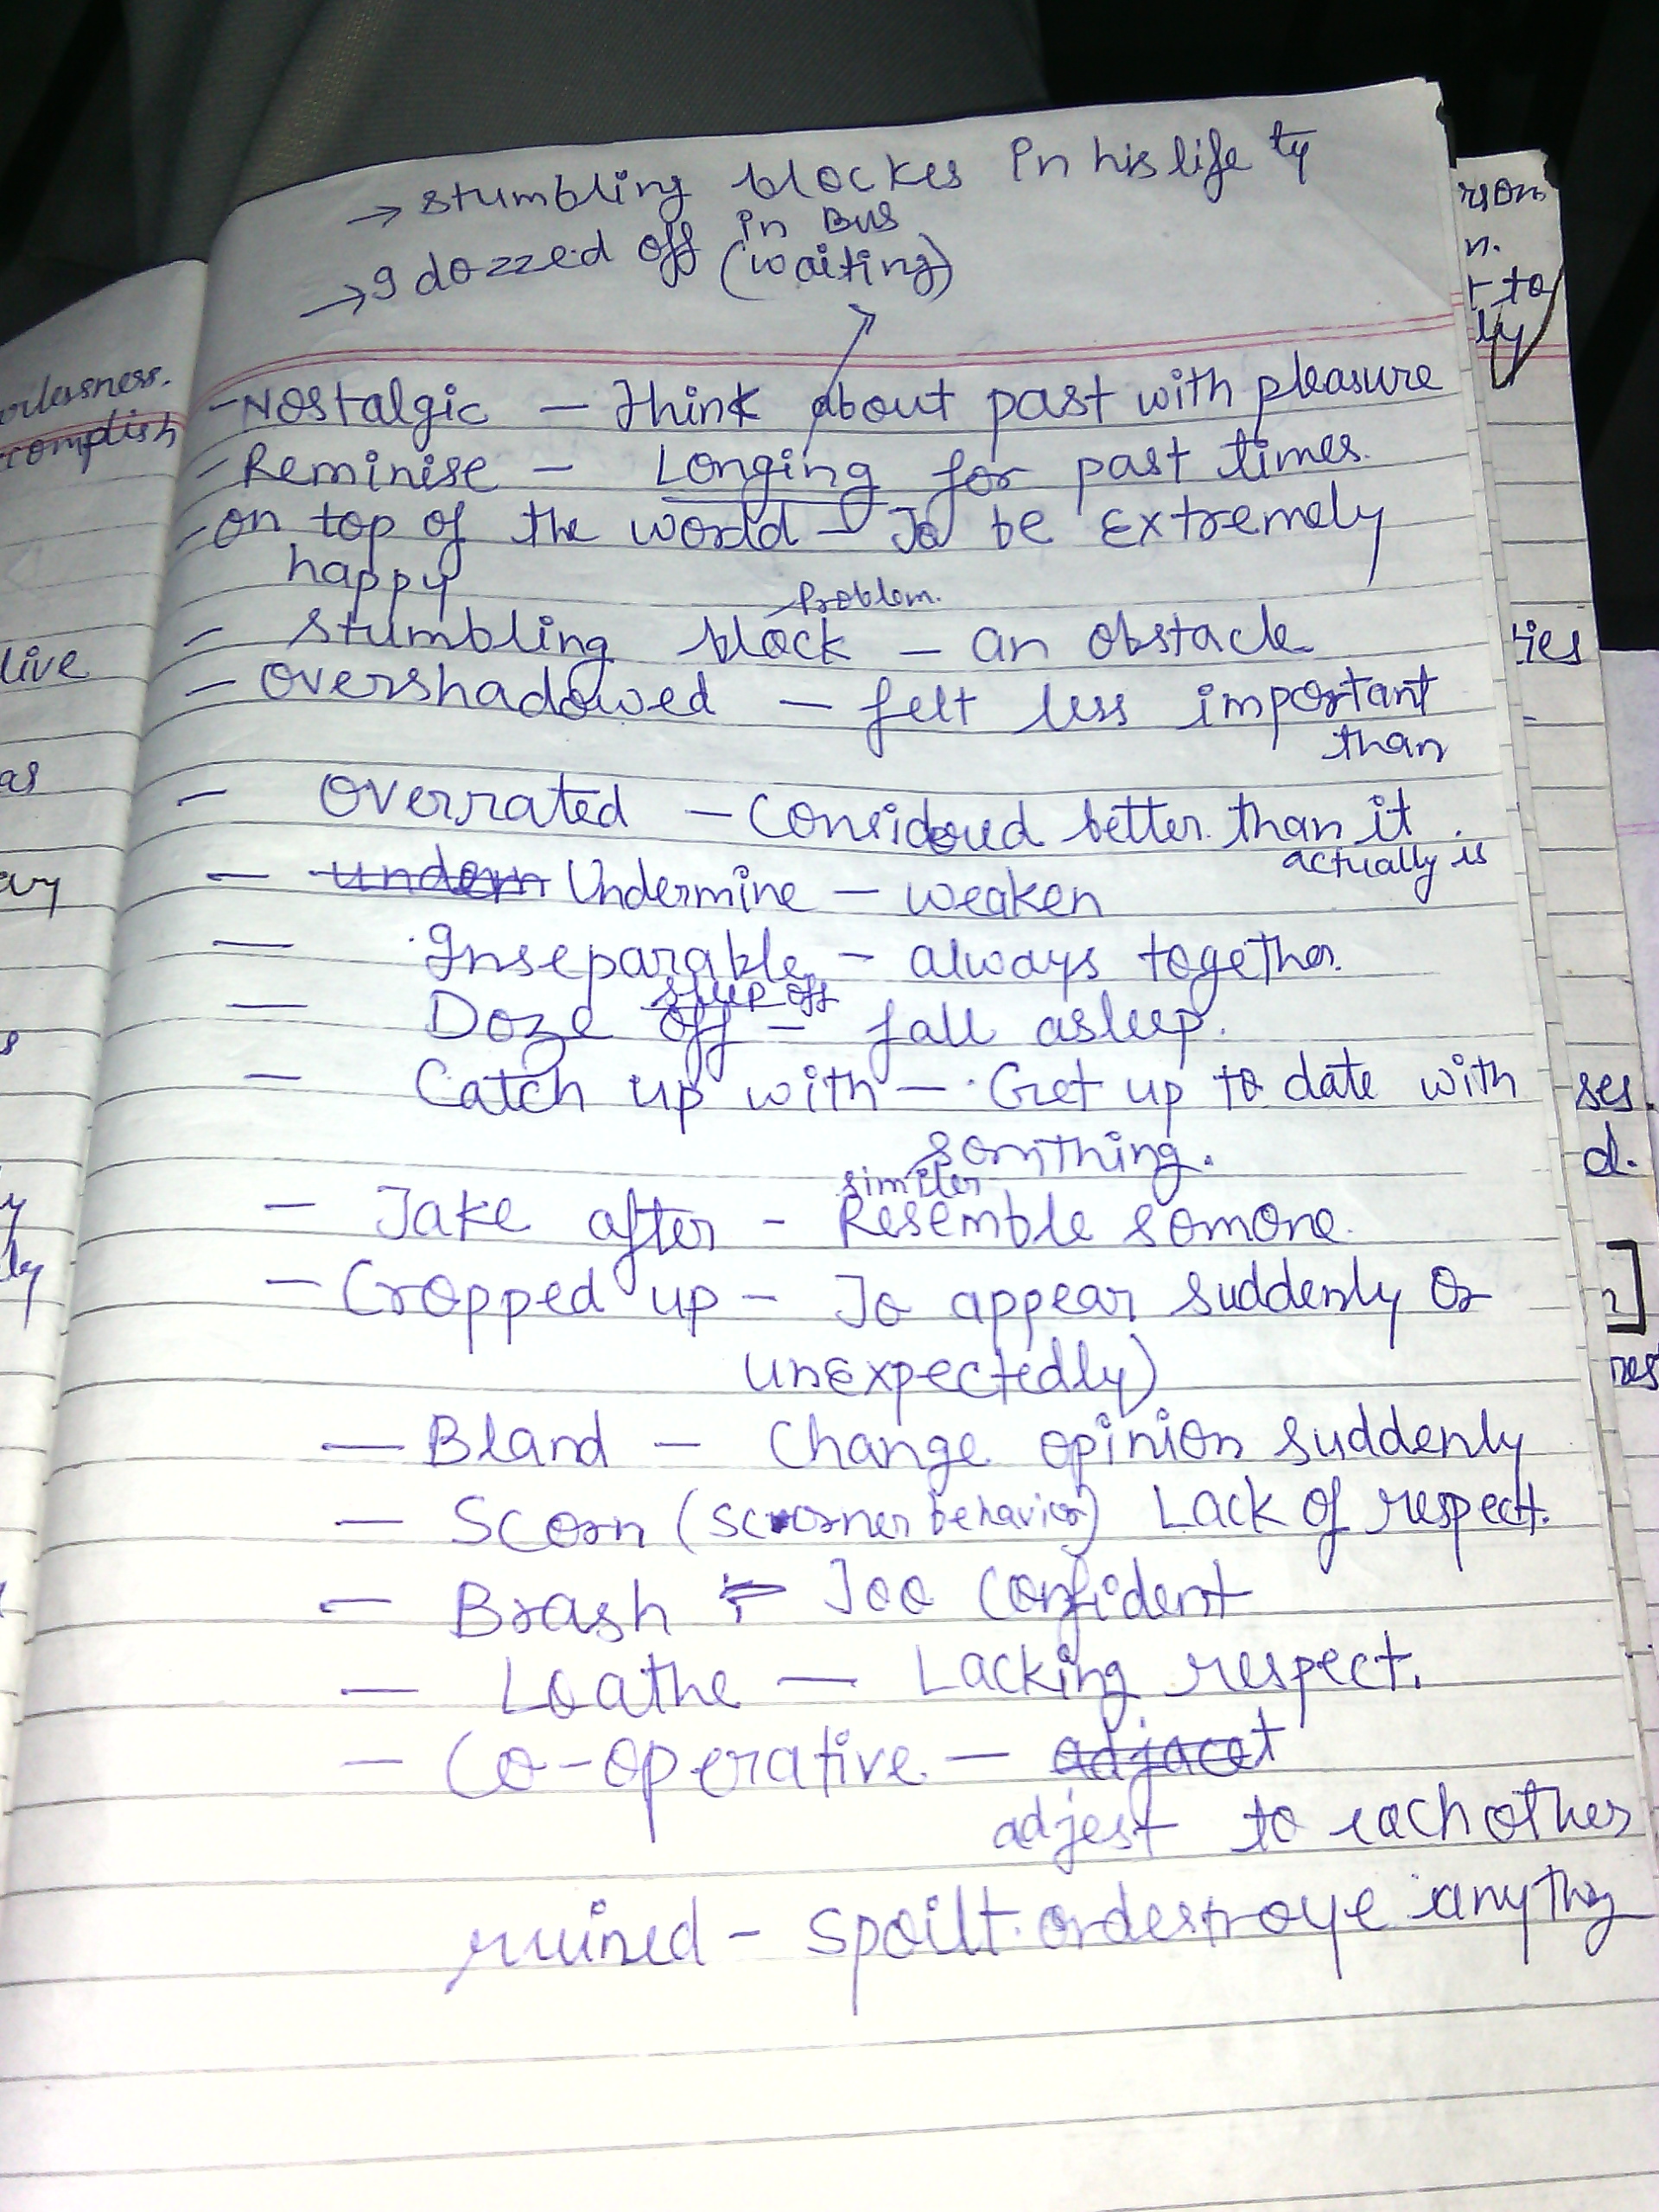 → stumbling blockes in his life ty
in Bus
→ I dozzed off (waiting)
- Nostalgic - Think about past with pleasure
- Reminise - Longing for past times.
- on top of the world - To be extremely
happy
Problem.
- stumbling block - an obstacle
- overshadowed - felt less important
than
- Overrated - Considered better than it
actually is
- undern Undermine - weaken
- Inseparable - always together.
sleep off
- Doze off - fall asleep.
- Catch up with - Get up to date with
somthing.
similer
- Take after - Resemble somone.
- Cropped up - To appear suddenly or
unexpectedly)
- Bland - Change opinion suddenly
- Scorn (scorner behavior) Lack of respect.
- Brash - Too confident
- Loathe - Lacking respect.
- Co-operative - adjacet
adjest to each other
ruined - spoilt or destroye anything
orlessness.
complish
live
as
ly
rson
n.
r to
ly
ries
ses.
d.